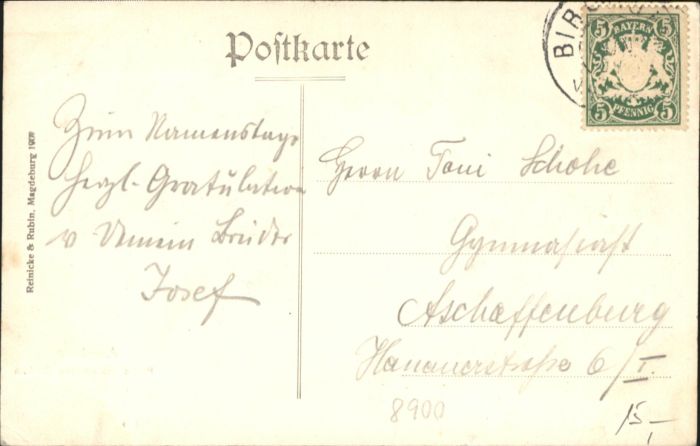 Postkarte
BAYERN
5 5
5 PFENNIG 5
Zum Namenstage
herzl. Gratulation
v Deinem Bruder
Josef
Herrn Toni Schohe
Gymnasiast
Aschaffenburg
Hanauerstraße 6/I.
8900
15,–
Reinicke & Rubin, Magdeburg 1909